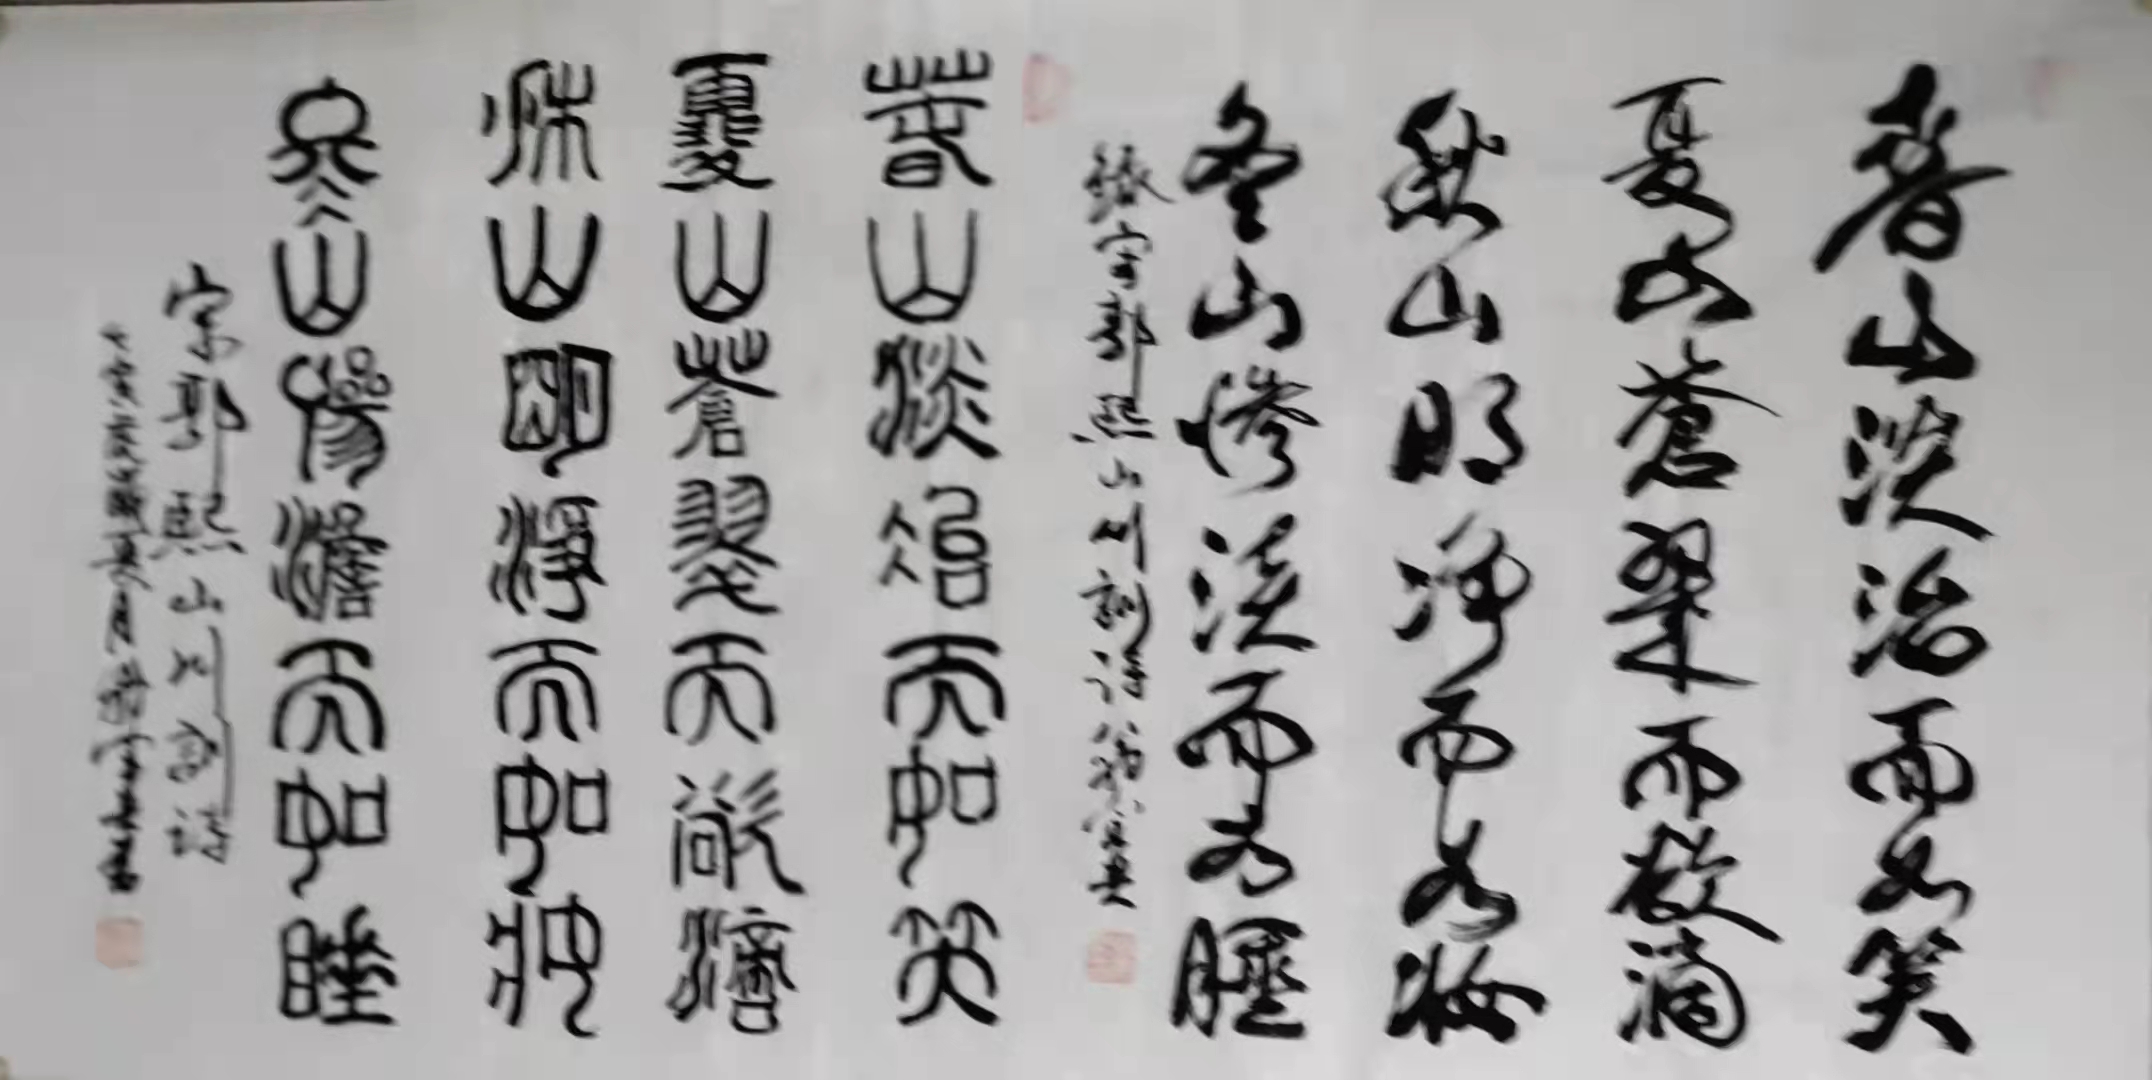 春山淡冶而如笑
夏山蒼翠而欲滴
秋山明淨而如妝
冬山慘淡而如睡
錄宋郭熙山川訓
春山淡冶而如笑
夏山蒼翠而欲滴
秋山明淨而如妝
冬山慘澹而如睡
宋郭熙山川訓詩